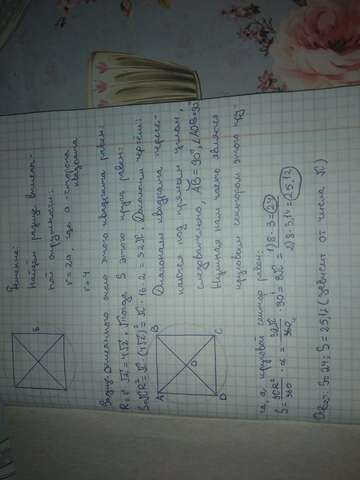 Решение
Найдем радиус вписан-
ной окружности.
r = 2a, где a - сторона
квадрата
r = 4
8
Радиус описанного около этого квадрата равен:
R = r√2 = 4√2. Тогда S этого круга равен:
S=πR² = π·(4√2)² = π·16·2 = 32π. Диагонали чертим:
A
B
C
D
O
Диагонали квадрата пересе-
каются под прямым углом,
следовательно, AB = 90°, ∠AOB = 90°
Нужная нам часть является
круговым сектором этого
га, а круговой сектор равен:
S = πR²/360 · α = 32π/360 · 90° = 8π
1) 8·3 = 24
2) 8·3,14 = 25,12
Ответ: S = 24; S = 25,12 (зависит от числа π)